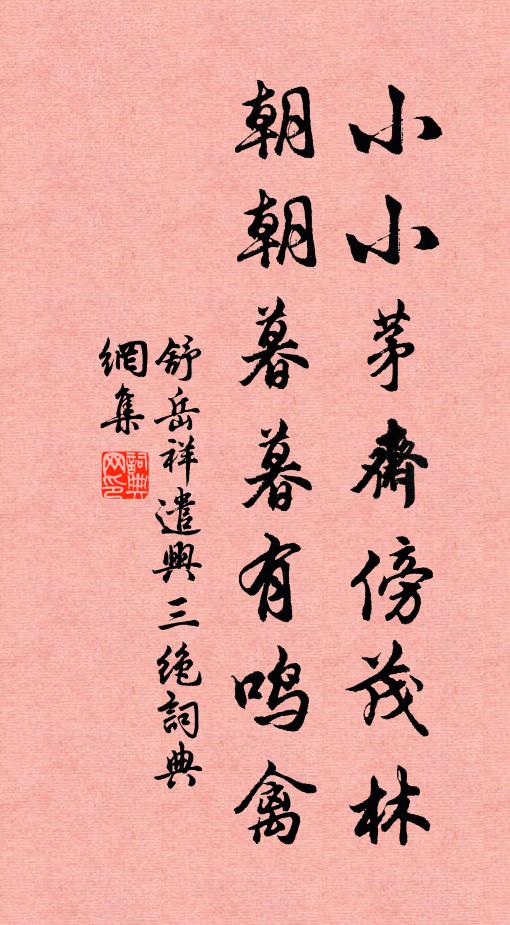 小小茅齋傍茂林
朝朝暮暮有鸣禽
舒岳祥遣興三絶詞典
網集
詞典
网印